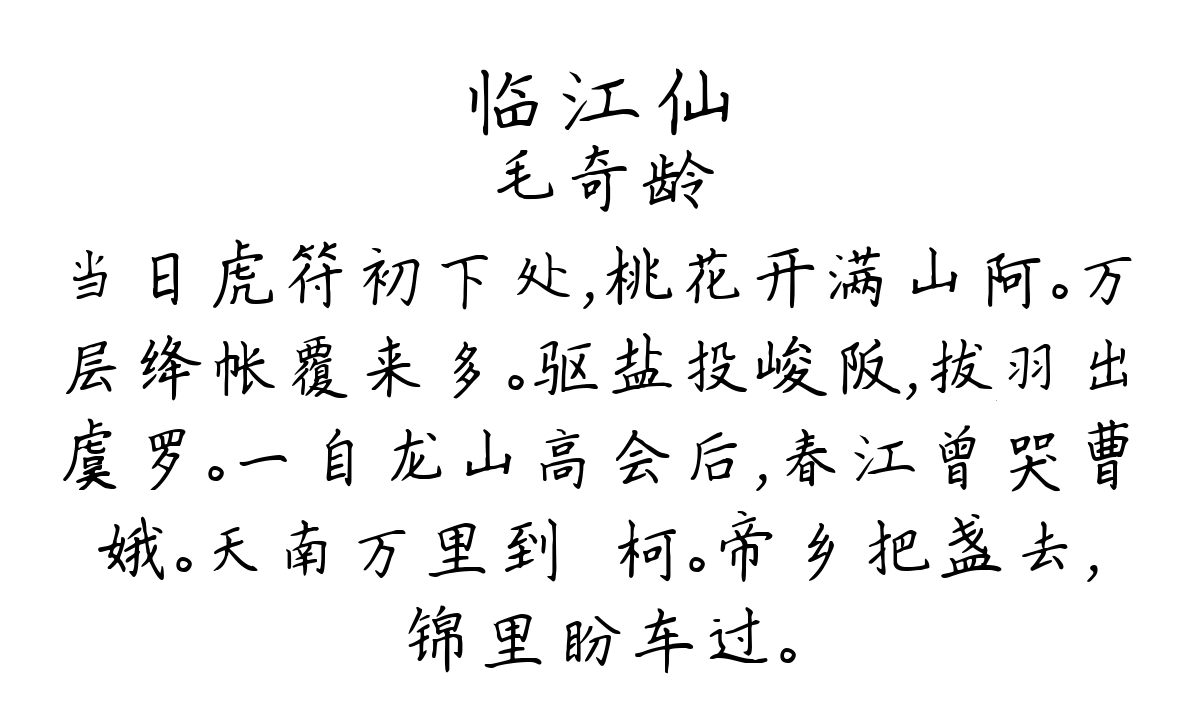 临江仙
毛奇龄
当日虎符初下处,桃花开满山阿。万
层绛帐覆来多。驱盐投峻阪,拔羽出
虞罗。一自龙山高会后,春江曾哭曹
娥。天南万里到 柯。帝乡把盏去,
锦里盼车过。